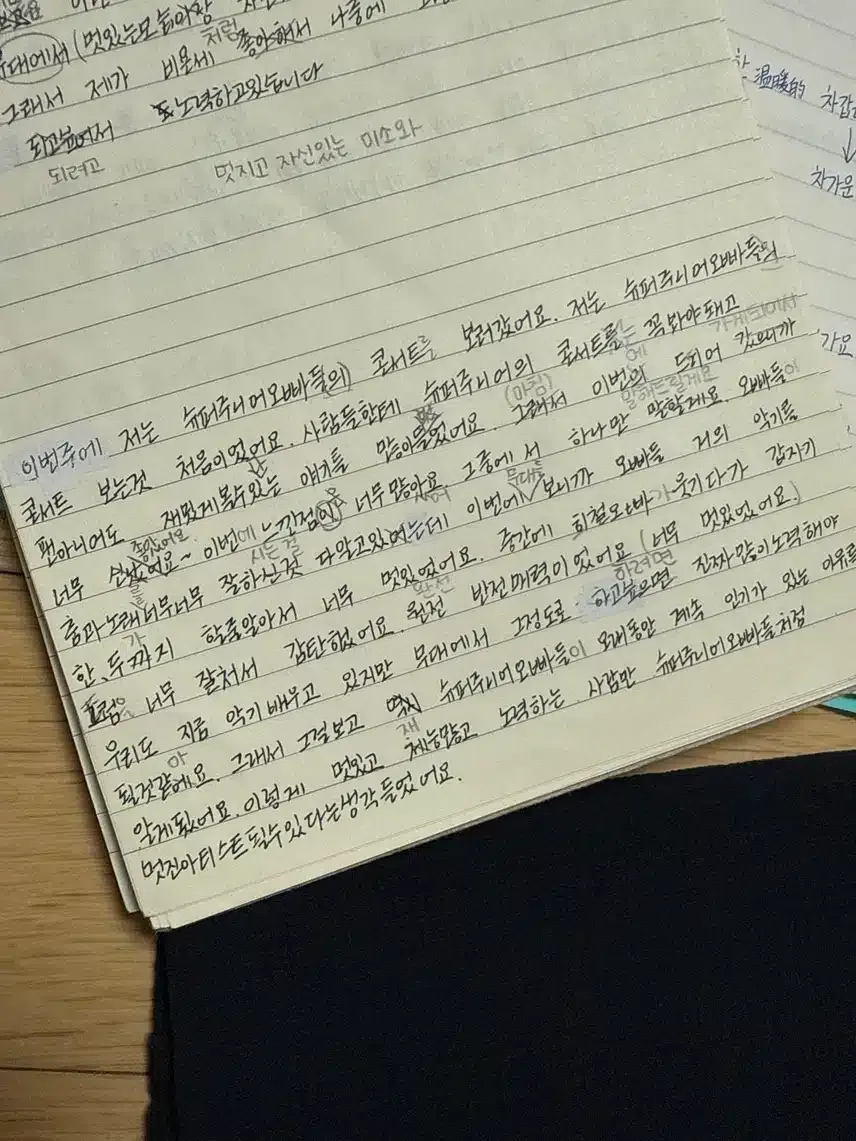 무대에서 (멋있는모습이랑
처럼
그래서 제가 비온세 좋아해서 나중에
되고싶어서 노력하고있습니다
되려고
멋지고 자신있는 미소와
이번주에 저는 슈퍼주니어오빠들(의) 콘서트를 보러갔어요. 저는 슈퍼주니어오빠들의
가게되어서
콘서트 보는것 처음이었어요. 사람들한테 슈퍼주니어의 콘서트를 꼭봐야돼고
는
(마침)
에
팬아니어도 재밌게볼수있는 얘기를 많이들었어요. 그래서 이번의 드디어 갔으니까
좋았어요
말해드릴게요
너무 신났어요~ 이번에 느낀점이 너무많아요. 그중에서 하나만 말할게요. 오빠들이
을
사는걸
무대를
춤과노래너무너무 잘하신것 다알고있었는데 이번에 보니까 오빠들 거의 악기를
를
한,두까지 할줄알아서 너무 멋있었어요. 중간에 희철오빠가 웃기다가 갑자기
가
완전
드럼을 너무 잘쳐서 감탄했어요. 원전 반전매력이었어요 (너무 멋있었어요.)
하려면
우리도 지금 악기배우고 있지만 무대에서 그정도로 하고싶으면 진짜많이노력해야
아
될것같에요. 그래서 그걸보고 역시 슈퍼주니어오빠들이 오래동안 계속 인기가 있는 이유를
재
알게됬어요. 이렇게 멋있고 체능많고 노력하는 사람만 슈퍼주니어오빠들처럼
멋진아티스트될수있다는생각들었어요.
温暖的 차갑
↓
차가운
가요